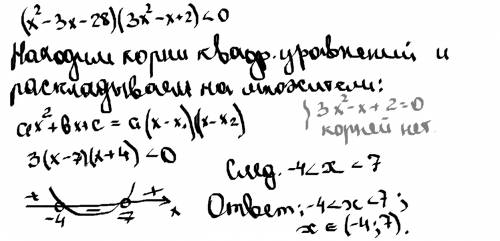 (x²-3x-28)(3x²-x+2)<0
Находим корни квадр. уравнений и
раскладываем на множители:
ax²+bx+c = a(x-x₁)(x-x₂)
{ 3x²-x+2=0
корней нет.
3(x-7)(x+4)<0
След. -4<x<7
+ - +
-4 7 x
Ответ: -4<x<7;
x ∈ (-4; 7).